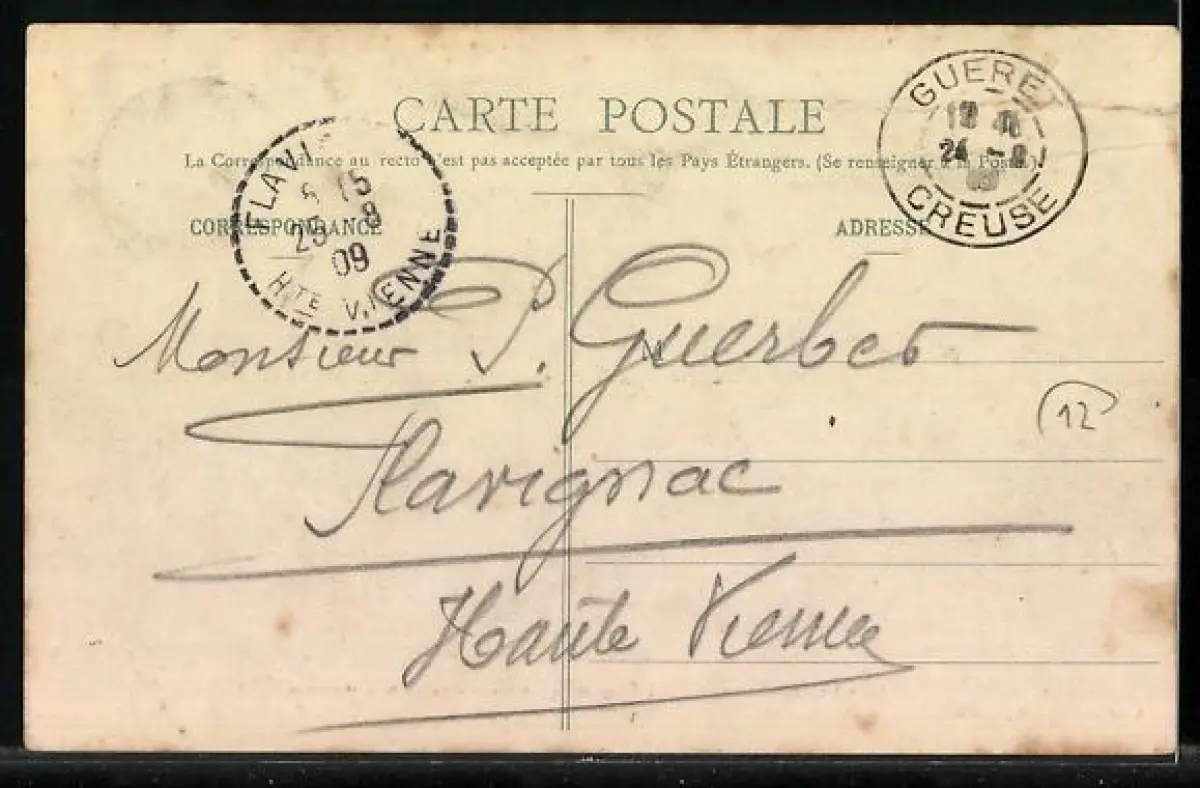 CARTE POSTALE
La Correspondance au recto n'est pas acceptée par tous les Pays Étrangers. (Se renseigner à la Poste).
CORRESPONDANCE
ADRESSE
FLAVI
25 -8
09
HTE VIENNE
GUERET
24 -8
CREUSE
Monsieur P. Guerbet
Flavignac
Haute Vienne
12